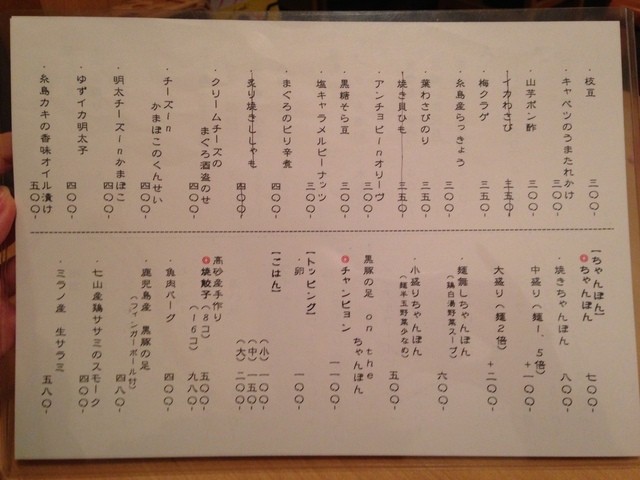 ・枝豆 三〇〇-
・キャベツのうまたれかけ 三〇〇-
・山芋ポン酢 三〇〇-
・イカわさび 三五〇-
・梅クラゲ 三五〇-
・糸島産らっきょう 三〇〇-
・葉わさびのり 三五〇-
・焼き貝ひも 三五〇-
・アンチョビinオリーヴ 三〇〇-
・黒糖そら豆 三〇〇-
・塩キャラメルピーナッツ 三〇〇-
・まぐろのピリ辛煮 四〇〇-
・炙り焼きししゃも 四〇〇-
・クリームチーズの
まぐろ酒盗のせ 四〇〇-
・チーズin
かまぼこのくんせい 四〇〇-
・明太チーズinかまぼこ 四〇〇-
・ゆずイカ明太子 四〇〇-
・糸島カキの香味オイル漬け 五〇〇-
【ちゃんぽん】
ちゃんぽん 七〇〇-
・焼きちゃんぽん 八〇〇-
中盛り(麺1.5倍) +一〇〇-
大盛り(麺2倍) +二〇〇-
・麺無しちゃんぽん
(鶏白湯野菜スープ) 六〇〇-
・小盛りちゃんぽん
(麺半玉野菜少なめ) 五〇〇-
黒豚の足 on the ちゃんぽん
チャンピョン 一一〇〇-
【トッピング】
・卵 一〇〇-
【ごはん】
(小)一〇〇-
(中)一五〇-
(大)二〇〇-
高砂産手作り
焼餃子(8コ) 五〇〇-
(16コ) 九八〇-
・魚肉バーグ 四〇〇-
・鹿児島産 黒豚の足
(フィンガーボール付) 四八〇-
・七山産鶏ササミのスモーク 四〇〇-
・ミラノ産 生サラミ 五八〇-